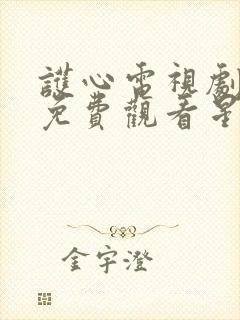 護心電視劇
免費觀看星
金宇澄